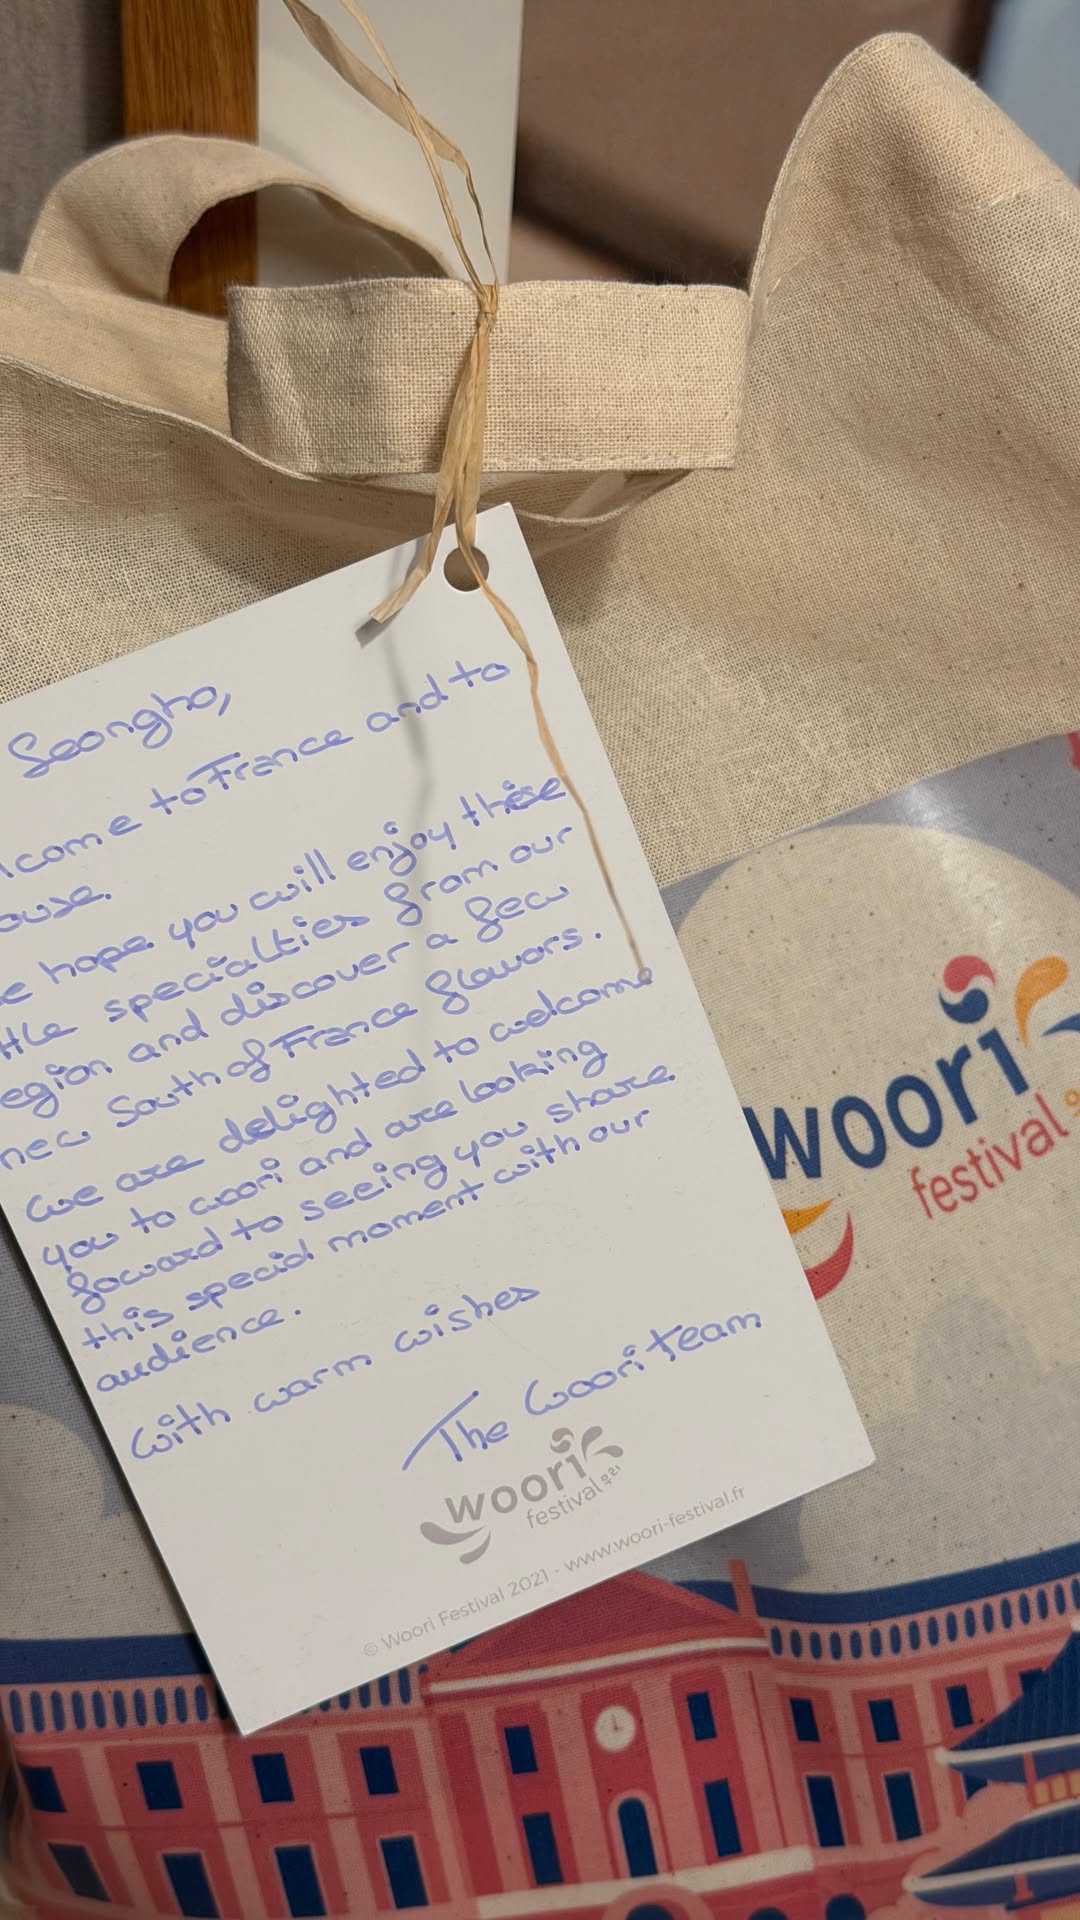 Seongho,
lcome to France and to
ouse.
e hope you will enjoy these
ttle specialties from our
egion and discover a few
new South of France flavors.
We are delighted to welcome
you to woori and are looking
foward to seeing you share
this special moment with our
audience.
With warm wishes
The Woori team
woori
festival
© Woori Festival 2021 - www.woori-festival.fr
woori
festival